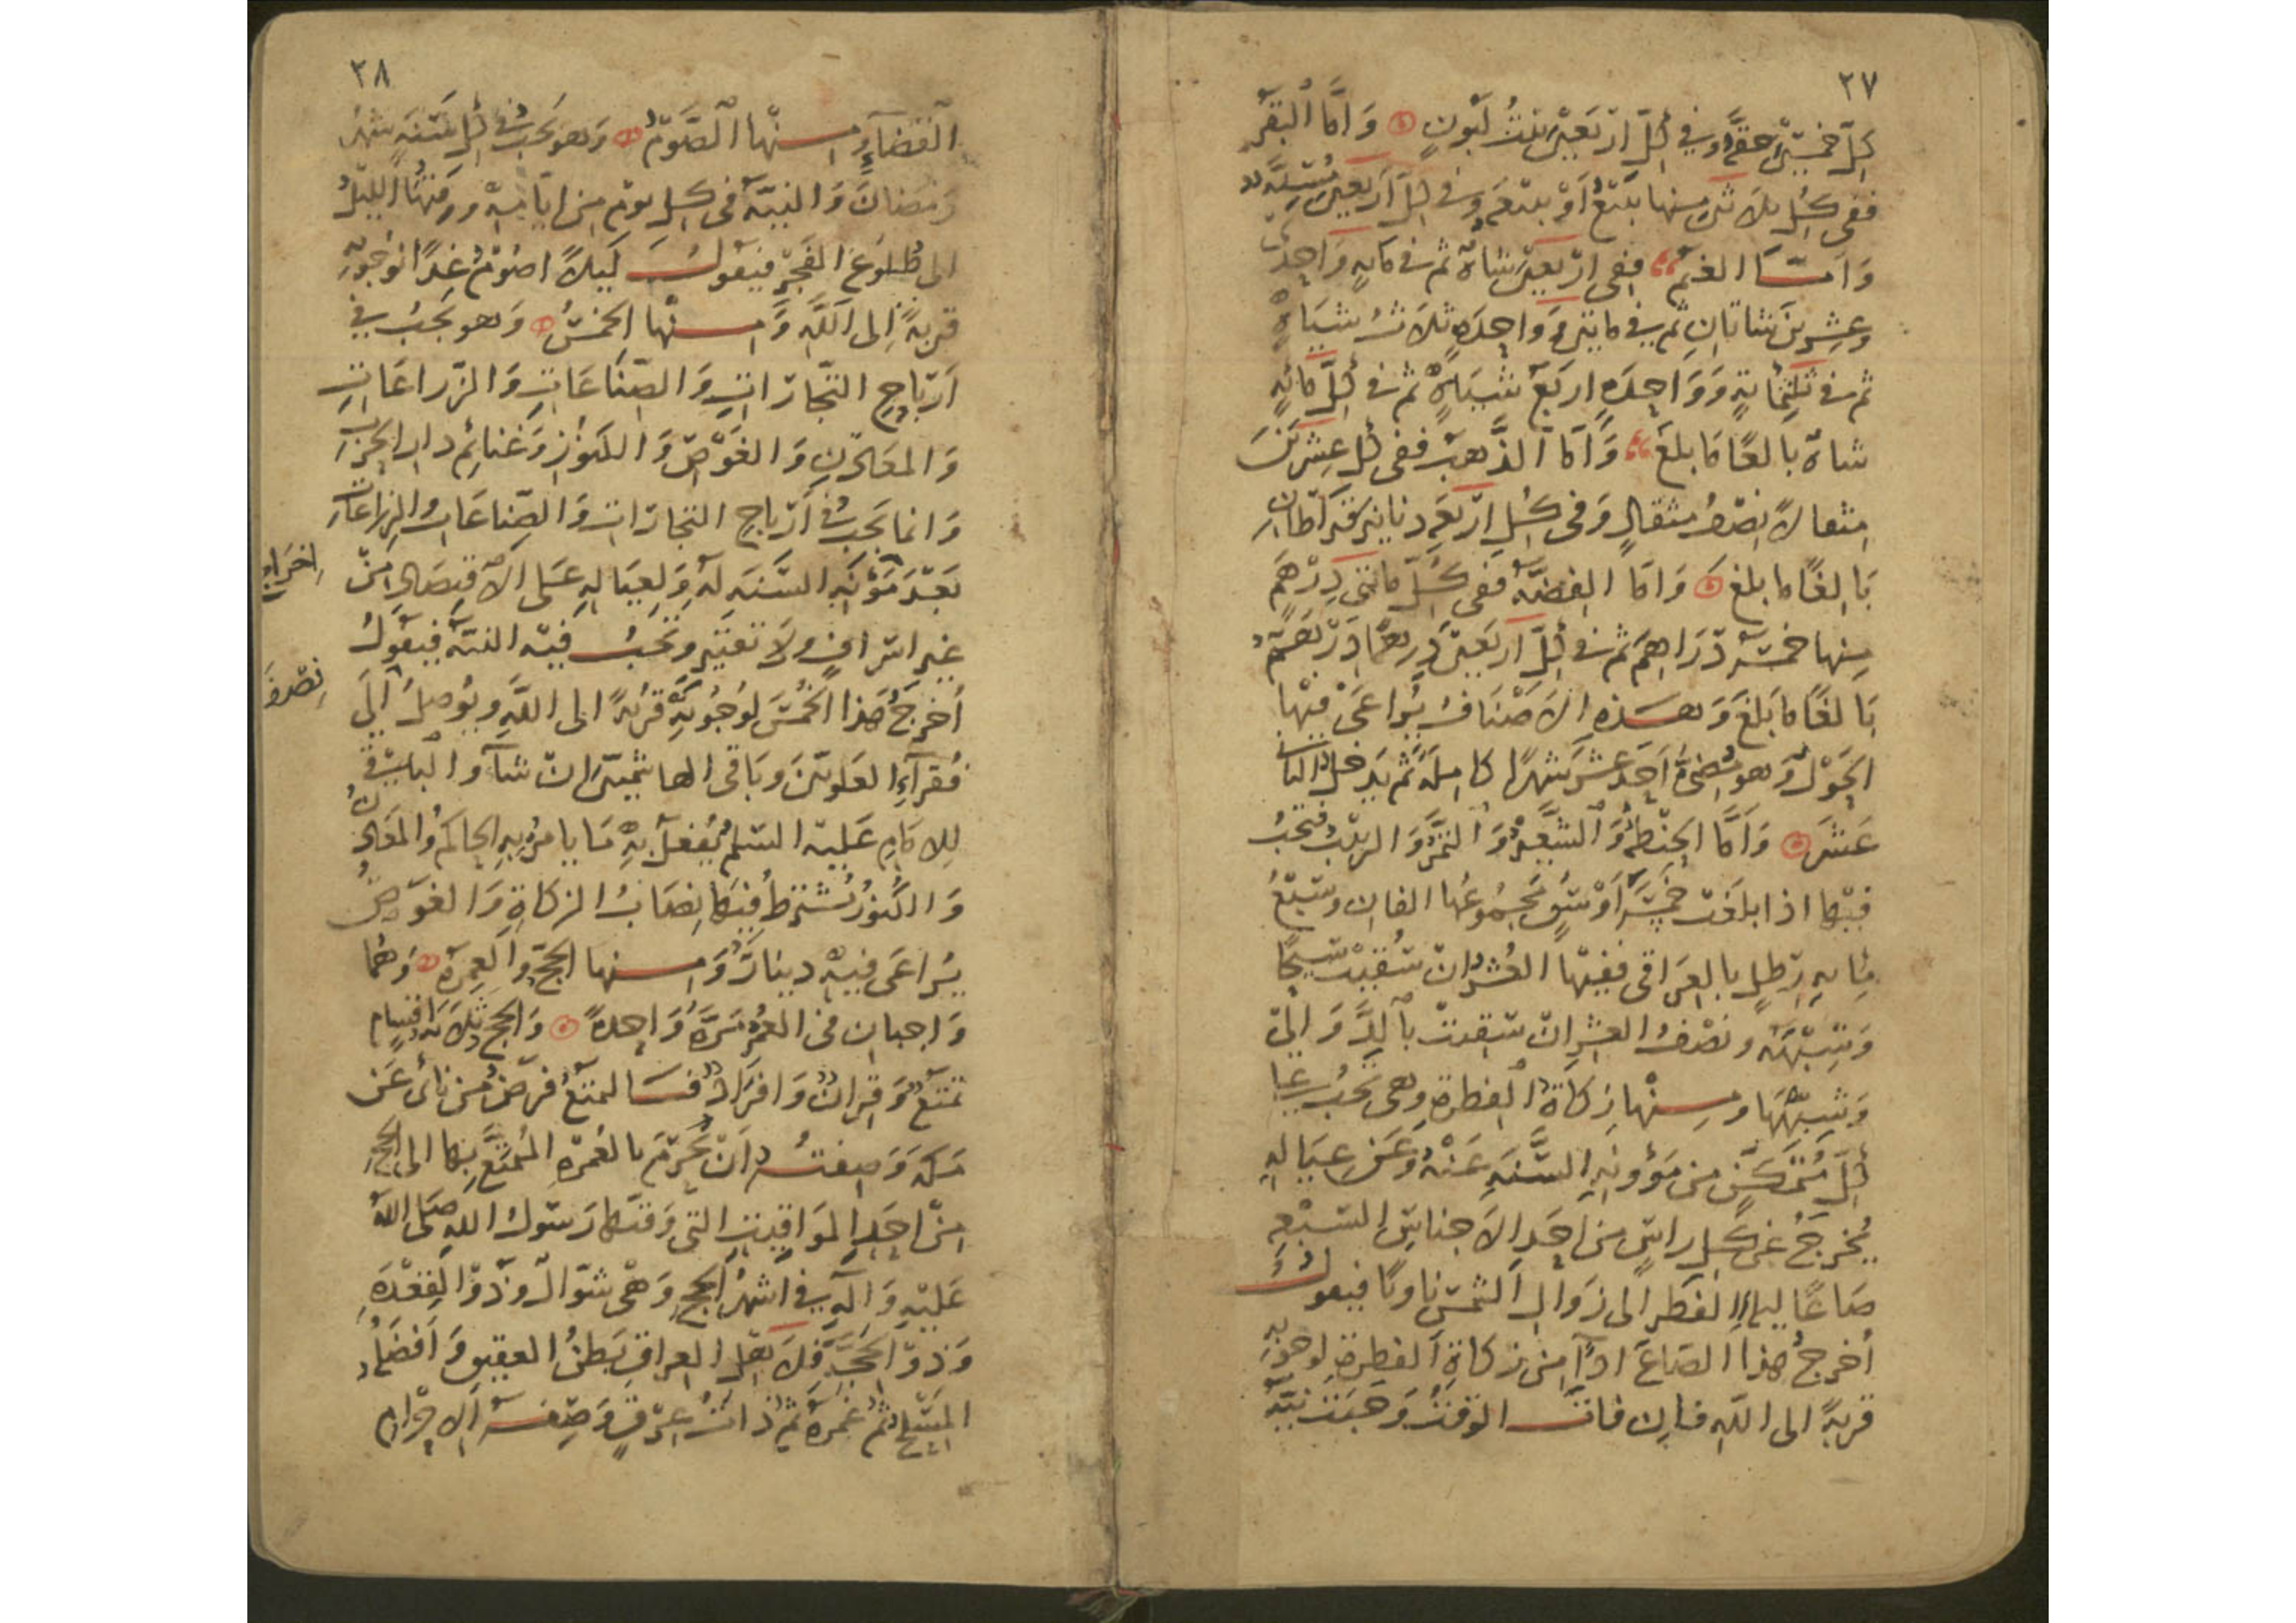 ٢٧
كلّ خمسين حقّة وفي كلّ اربعين بنتُ لبونٍ وَامَّا البقر
ففي كل ثلاثين منها تبيع أوْ تبيعة وفي كلّ أربعين مُسنّة
وَامّا الغنم ففي اربعين شاة ثم في مايةٍ وَاحدى
وعشرين شاتان ثم في مايتين وَواحدة ثلاث شياه
ثم في ثلثماية وَوَاحدة اربع شياه ثم في كلّ ماية
شاة بالغًا مَا بلغ وَامّا الذَّهب ففي كل عشرين
مثقالاً نصف مثقال وَفى كل اربعة دنانير قيراطان
بَالغًا ما بلغ وَامّا الفضّة ففي كلّ مائتي دِرْهَم
منها خمسة دَرَاهم ثم في كلّ اربعين دِرهمًا دِرْهَم
بَالغًا ما بَلغَ وَهذه الاَصْنَاف يُراعَى فيها
الحَوْل وَهو مُضيُّ أحَد عشر شهرًا كاملة ثم يدخل الثاني
عَشَر وَأمَّا الحِنطة وَالشّعير وَالتّمر وَالزبيب فتجبُ
فيها اذا بلغت خمسَة أوْسُق مجموعُها الفان وسبعُ
مِايةِ رِطلٍ بالعراقى ففيها العُشر ان سُقيت سَيحًا
وَشِبْهه ونصْف العشر ان سقيت بالدلاء
وَشبهها ومنها زكاة الفطرة وهى تجبُ على
كلّ مُتمكّن من مَؤونة السَّنَةِ عَنْهُ وَعَن عيَاله
يُخرجُ عن كل راسٍ من احَدِ الاَجناس السَّبْعةِ
صَاعًا ليلة الفطر الى زوال الشمس ناويًا فيقول
أخرجُ هذا الصَاعَ اداءً من زكاة الفطرة لوجوبه
قربةً الى الله فان فات الوقت وَجبَت نيّة
٢٨
القضاء وَمنها الصَّوم وَهو يجب في كل سَنَةٍ شهر
رَمَضانَ وَالنيّة فى كل يوم من ايّامه ووقتُها الليل
الى طلوع الفجر فيقول لَيلاً اصُومُ غدًا لوجوبه
قربةً إلى الله وَمنها الخمسُ وَهو يَجبُ في
اَرْبَاح التّجاراتِ وَالصّنَاعَاتِ وَالزّراعَاتِ
وَالمعَادن وَالغَوْص وَالكنوز وَغنائم دار الحرب
وَانما يَجبُ في أرْباح التجارات وَالصّناعات والزراعات
بَعْدَ مَؤنةِ السَّنَةِ لهُ وَلِعِيَالهِ عَلى الاقتصَادِ مِنْ
غير اسرافٍ ولا تقتير وَتجبُ فيه النيّة فيقول
اخراج
أُخرجُ هَذا الخُمسَ لوجُوبه قُربةً الى الله ويُوصِلُ الى
نصْفهُ
فقرآءِ العَلويّين وبَاقى الهاشميّين ان شآء والباقي
للامَام عَليه السّلم يُفعل بهِ مَا يامرُ به الحاكم والمعَادن
وَالكنوز يُشترط فيها نصَابُ الزكاةِ وَالغوصُ
يُراعَى فيه دينار وَمنها الحجّ والعمرة وَهُما
وَاجبان في العُمر مَرّة وَاحدة وَالحج ثلاثة اقسام
تمتّع وَقِران وَافرَاد فَالتمتّع فرض من نأى عَن
مكة وَصفته ان يُحرم بالعُمرة المُتمتّع بها الى الحج
مِنْ احَدِ المَوَاقيتِ التى وَقتهَا رَسُولُ الله صَلى الله
عَليْه وَآلِه في اشهر الحج وَهْى شوّال وذو القعدة
وَذو الحجّة فلأهْل العراق بَطنُ العقيق وَافضَله
المَسْلخ ثم غمرة ثم ذاتُ عِرْقٍ وَصفة الاحْرام